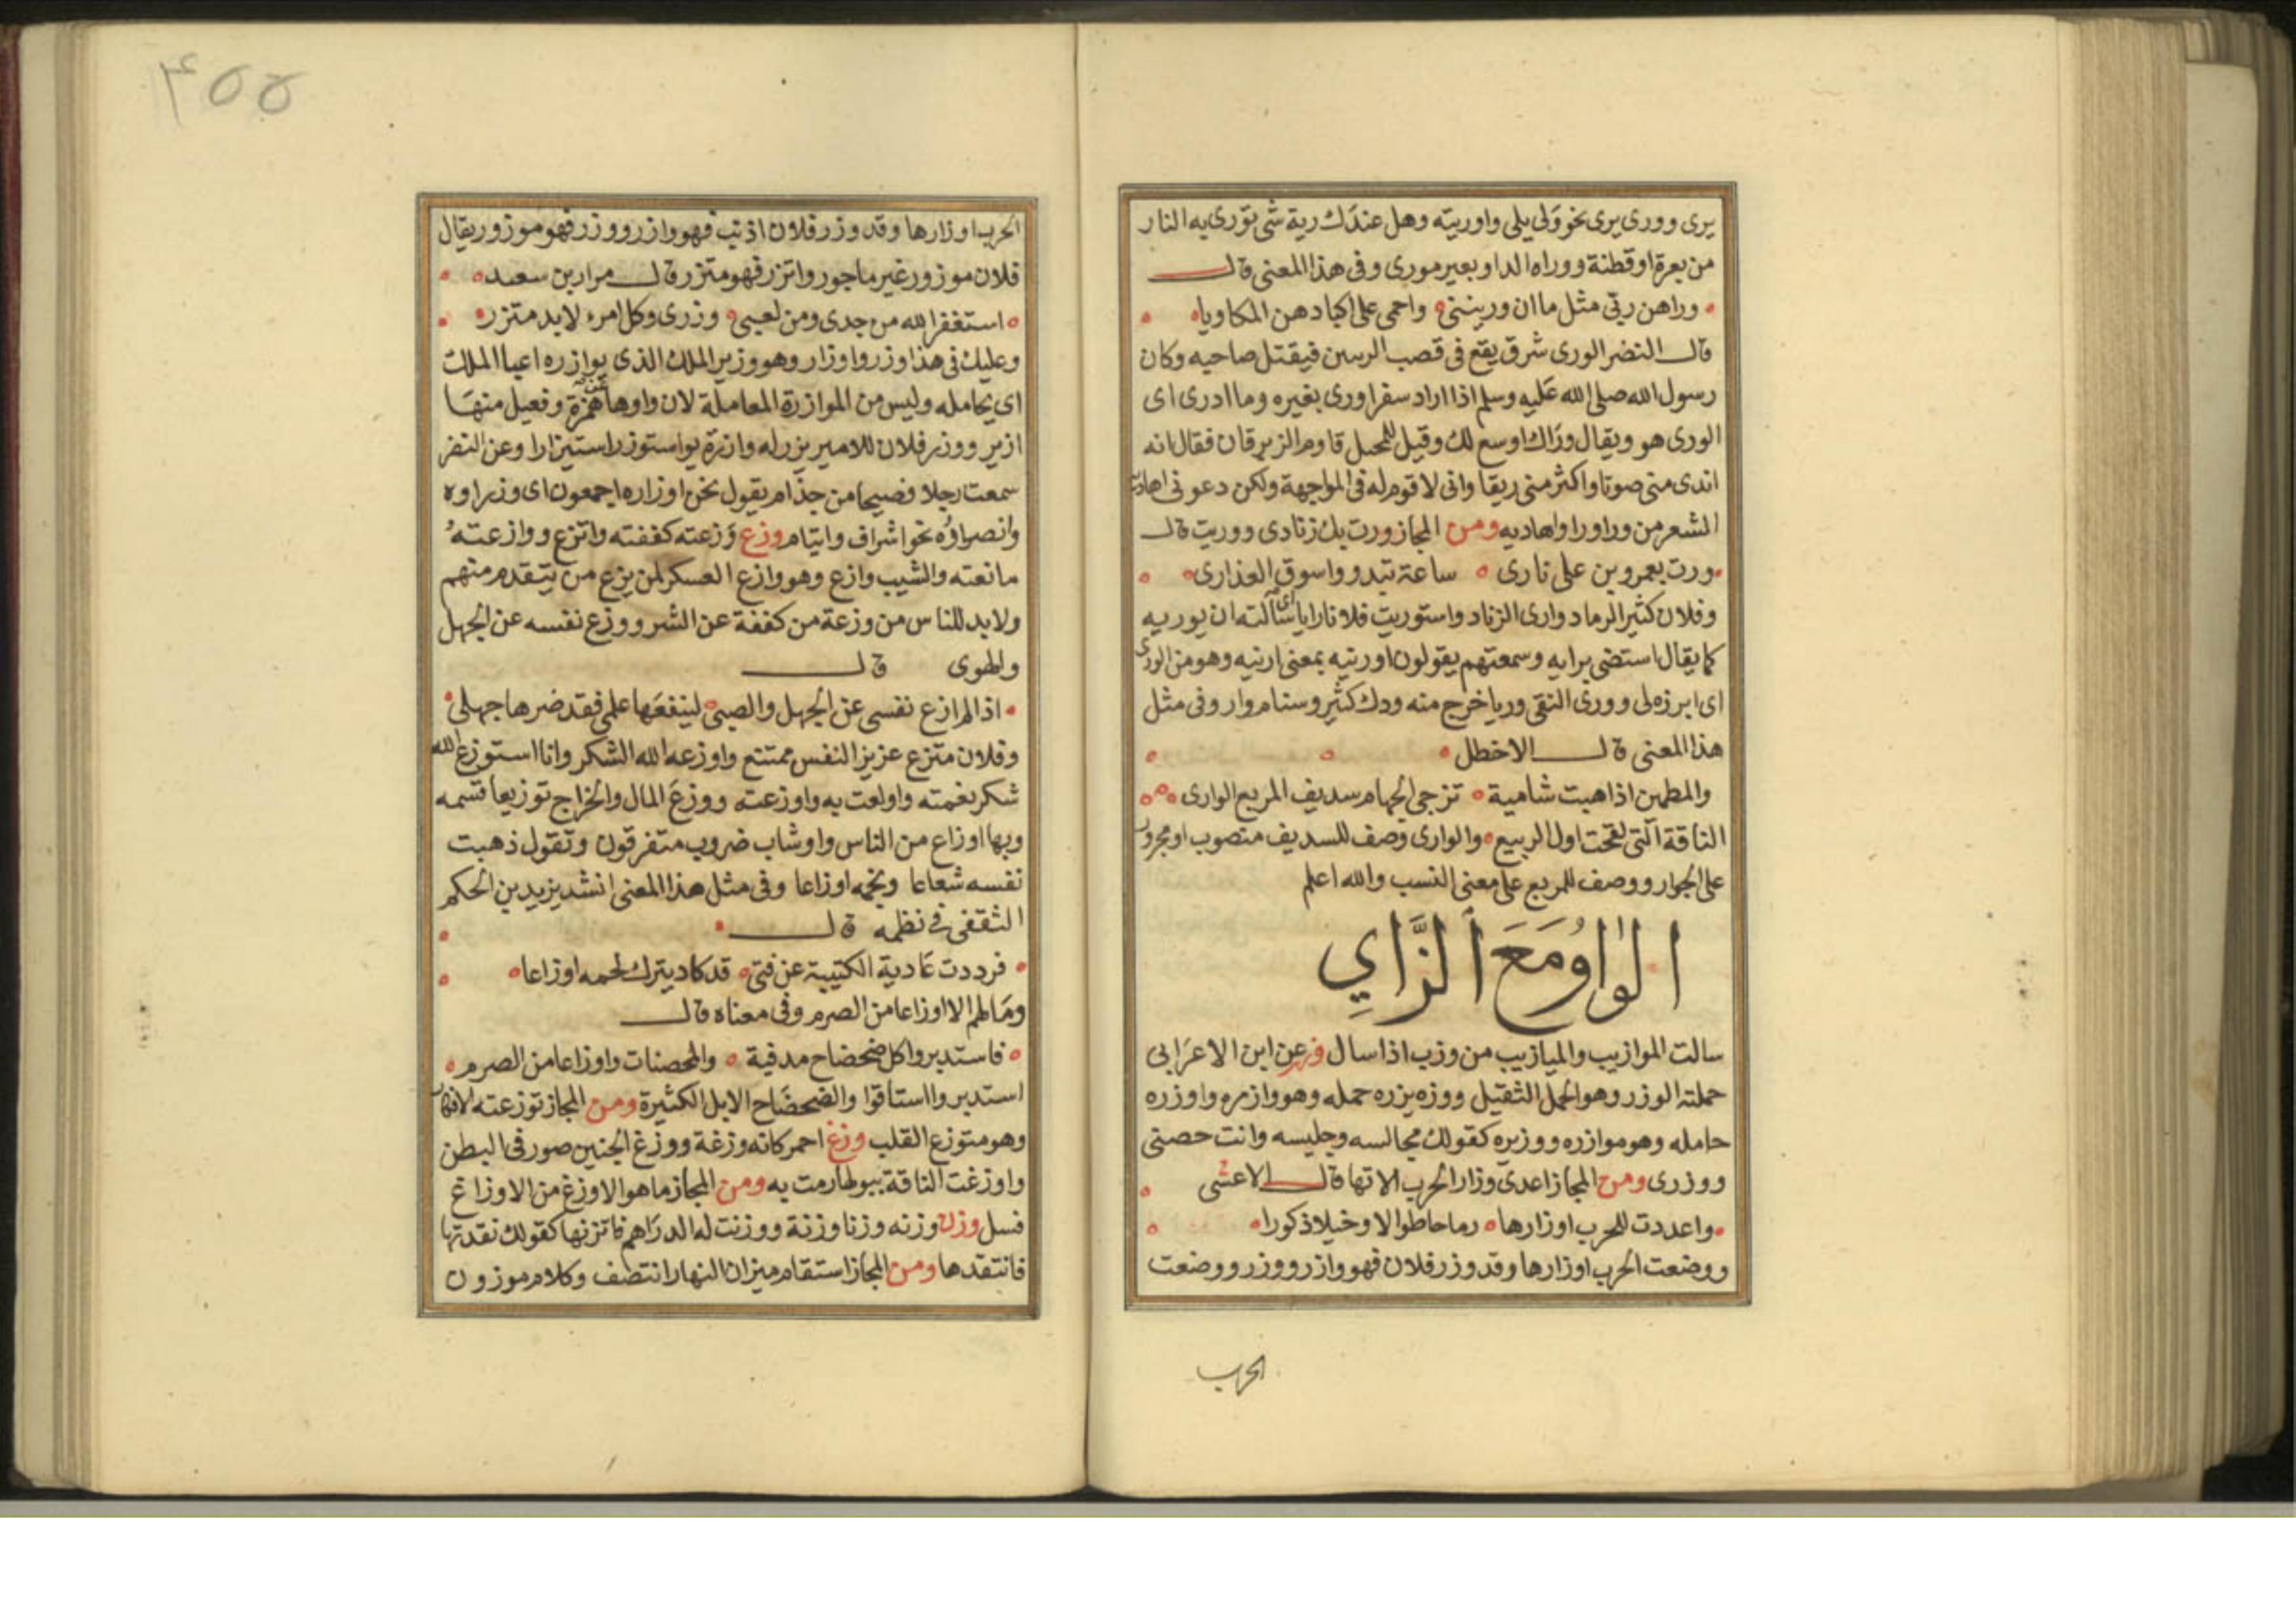 يرى وورى يرى نحو ولى يلى واوريته وهل عندك رية شى تورى به النار
من بعرة او قطنة ووراه الدا وبعير مورى وفى هذا المعنى قال
وراهن ربى مثل ما ان وريننى واحمى على اكبادهن المكاويا
قال النضر الورى شرق يقع فى قصب الريين فيقتل صاحبه وكان
رسول الله صلى الله عليه وسلم اذا اراد سفرا ورى بغيره وما ادرى اى
الورى هو ويقال وراك اوسع لك وقيل للمخبل قاوم الزبرقان فقال انه
اندى منى صوتا واكثر منى ريقا وانى لا قوم له فى المواجهة ولكن دعونى
الشعر من وراورا واهاديه ومن المجاز ورت بك زنادى ووريت قال
ورت بعمرو بن على نارى ساعة تبدو واسوق العذارى
وفلان كثير الرماد وارى الزناد واستوريت فلانا رايا اى سالته ان يوريه
كما يقال استضى برايه وسمعتهم يقولون اورنيه بمعنى ارنيه وهو من الورى
اى ابرزه لى وورى النقى وريا خرج منه ودك كثير وسنام وار وفى مثل
هذا المعنى قال الاخطل
والمطهين اذا هبت شامية تزجى الجهام سديف المربع الوارى
الناقة التى لقحت اول الربيع والوارى وصف للسديف منصوب او مجرور
على الجوار ووصف للمربع على معنى النسب والله اعلم
الواو مع الزاي
سالت الموازيب والميازيب من وزب اذا سال عن ابن الاعرابى
حملته الوزر وهو الحمل الثقيل ووزه يزره حمله وهو وازره واوزره
حامله وهو موازره ووزيره كقولك مجالسه وجليسه وانت حصنى
ووزرى ومن المجاز اعدى وزار الحرب الاتها قال الاعشى
واعددت للحرب اوزارها رماحا طوالا وخيلا ذكورا
ووضعت الحرب اوزارها وقد وزر فلان فهو وازر ووزر ووضعت
الحرب
۴۵۵
الحرب اوزارها وقد وزر فلان اذنب فهو وازر ووزر فهو موزور يقال
فلان موزور غير ماجور واتزر فهو متزر قال مرار بن سعيد
استغفر الله من جدى ومن لعبى وزرى وكل امرء لابد متزر
وعليك فى هذا وزر واوزار وهو وزير الملك الذى يوازره اعبا الملك
اى يحامله وليس من الموازرة المعاملة لان واوها عن همزة وفعيل منها
ازير ووزر فلان للامير يزر له وازرة يواستوزر استيزارا وعن النضر
سمعت رجلا فصيحا من جذام يقول نحن اوزاره اجمعون اى وزراوه
وانصراوه نحو اشراف وايتام وزع وزعته كففته واتزع ووازعته
مانعته والشيب وازع وهو وازع العسكر لمن يزع من يتقدم منهم
ولابد للناس من وزعة من كففة عن الشر ووزع نفسه عن الجهل
والهوى قال
اذا لم ازع نفسى عن الجهل والصبى لينفعها علمى فقد ضرها جهلى
وفلان متزع عزيز النفس ممتنع واوزعه الله الشكر وانا استوزع الله
شكر نعمته واولعت به واوزعته ووزع المال والخراج توزيعا قسمه
وبها اوزاع من الناس واوشاب ضروب متفرقون وتقول ذهبت
نفسه شعاعا ولحمه اوزاعا وفى مثل هذا المعنى انشد يزيد بن الحكم
الثقفى فى نظمه قال
فرددت عادية الكتيبة عن فتى قد كاد يترك لحمه اوزاعا
وما لهم الا اوزاعا من الصرم وفى معناه قال
فاستدبروا كل ضحضاح مدفية والمحصنات واوزاعا من الصرم
استدبروا استاقوا والضحضاح الابل الكثيرة ومن المجاز توزعته الافكار
وهو متوزع القلب وزغ احمر كانه وزغة ووزغ الجنين صور فى البطن
واوزغت الناقة ببولها رمت به ومن المجاز ما هو الاوزغ من الاوزاغ
فسل وزن وزنه وزنا وزنة ووزنت له الدراهم فاتزنها كقولك نقدتها
فانتقدها ومن المجاز استقام ميزان النهار انتصف وكلام موزون